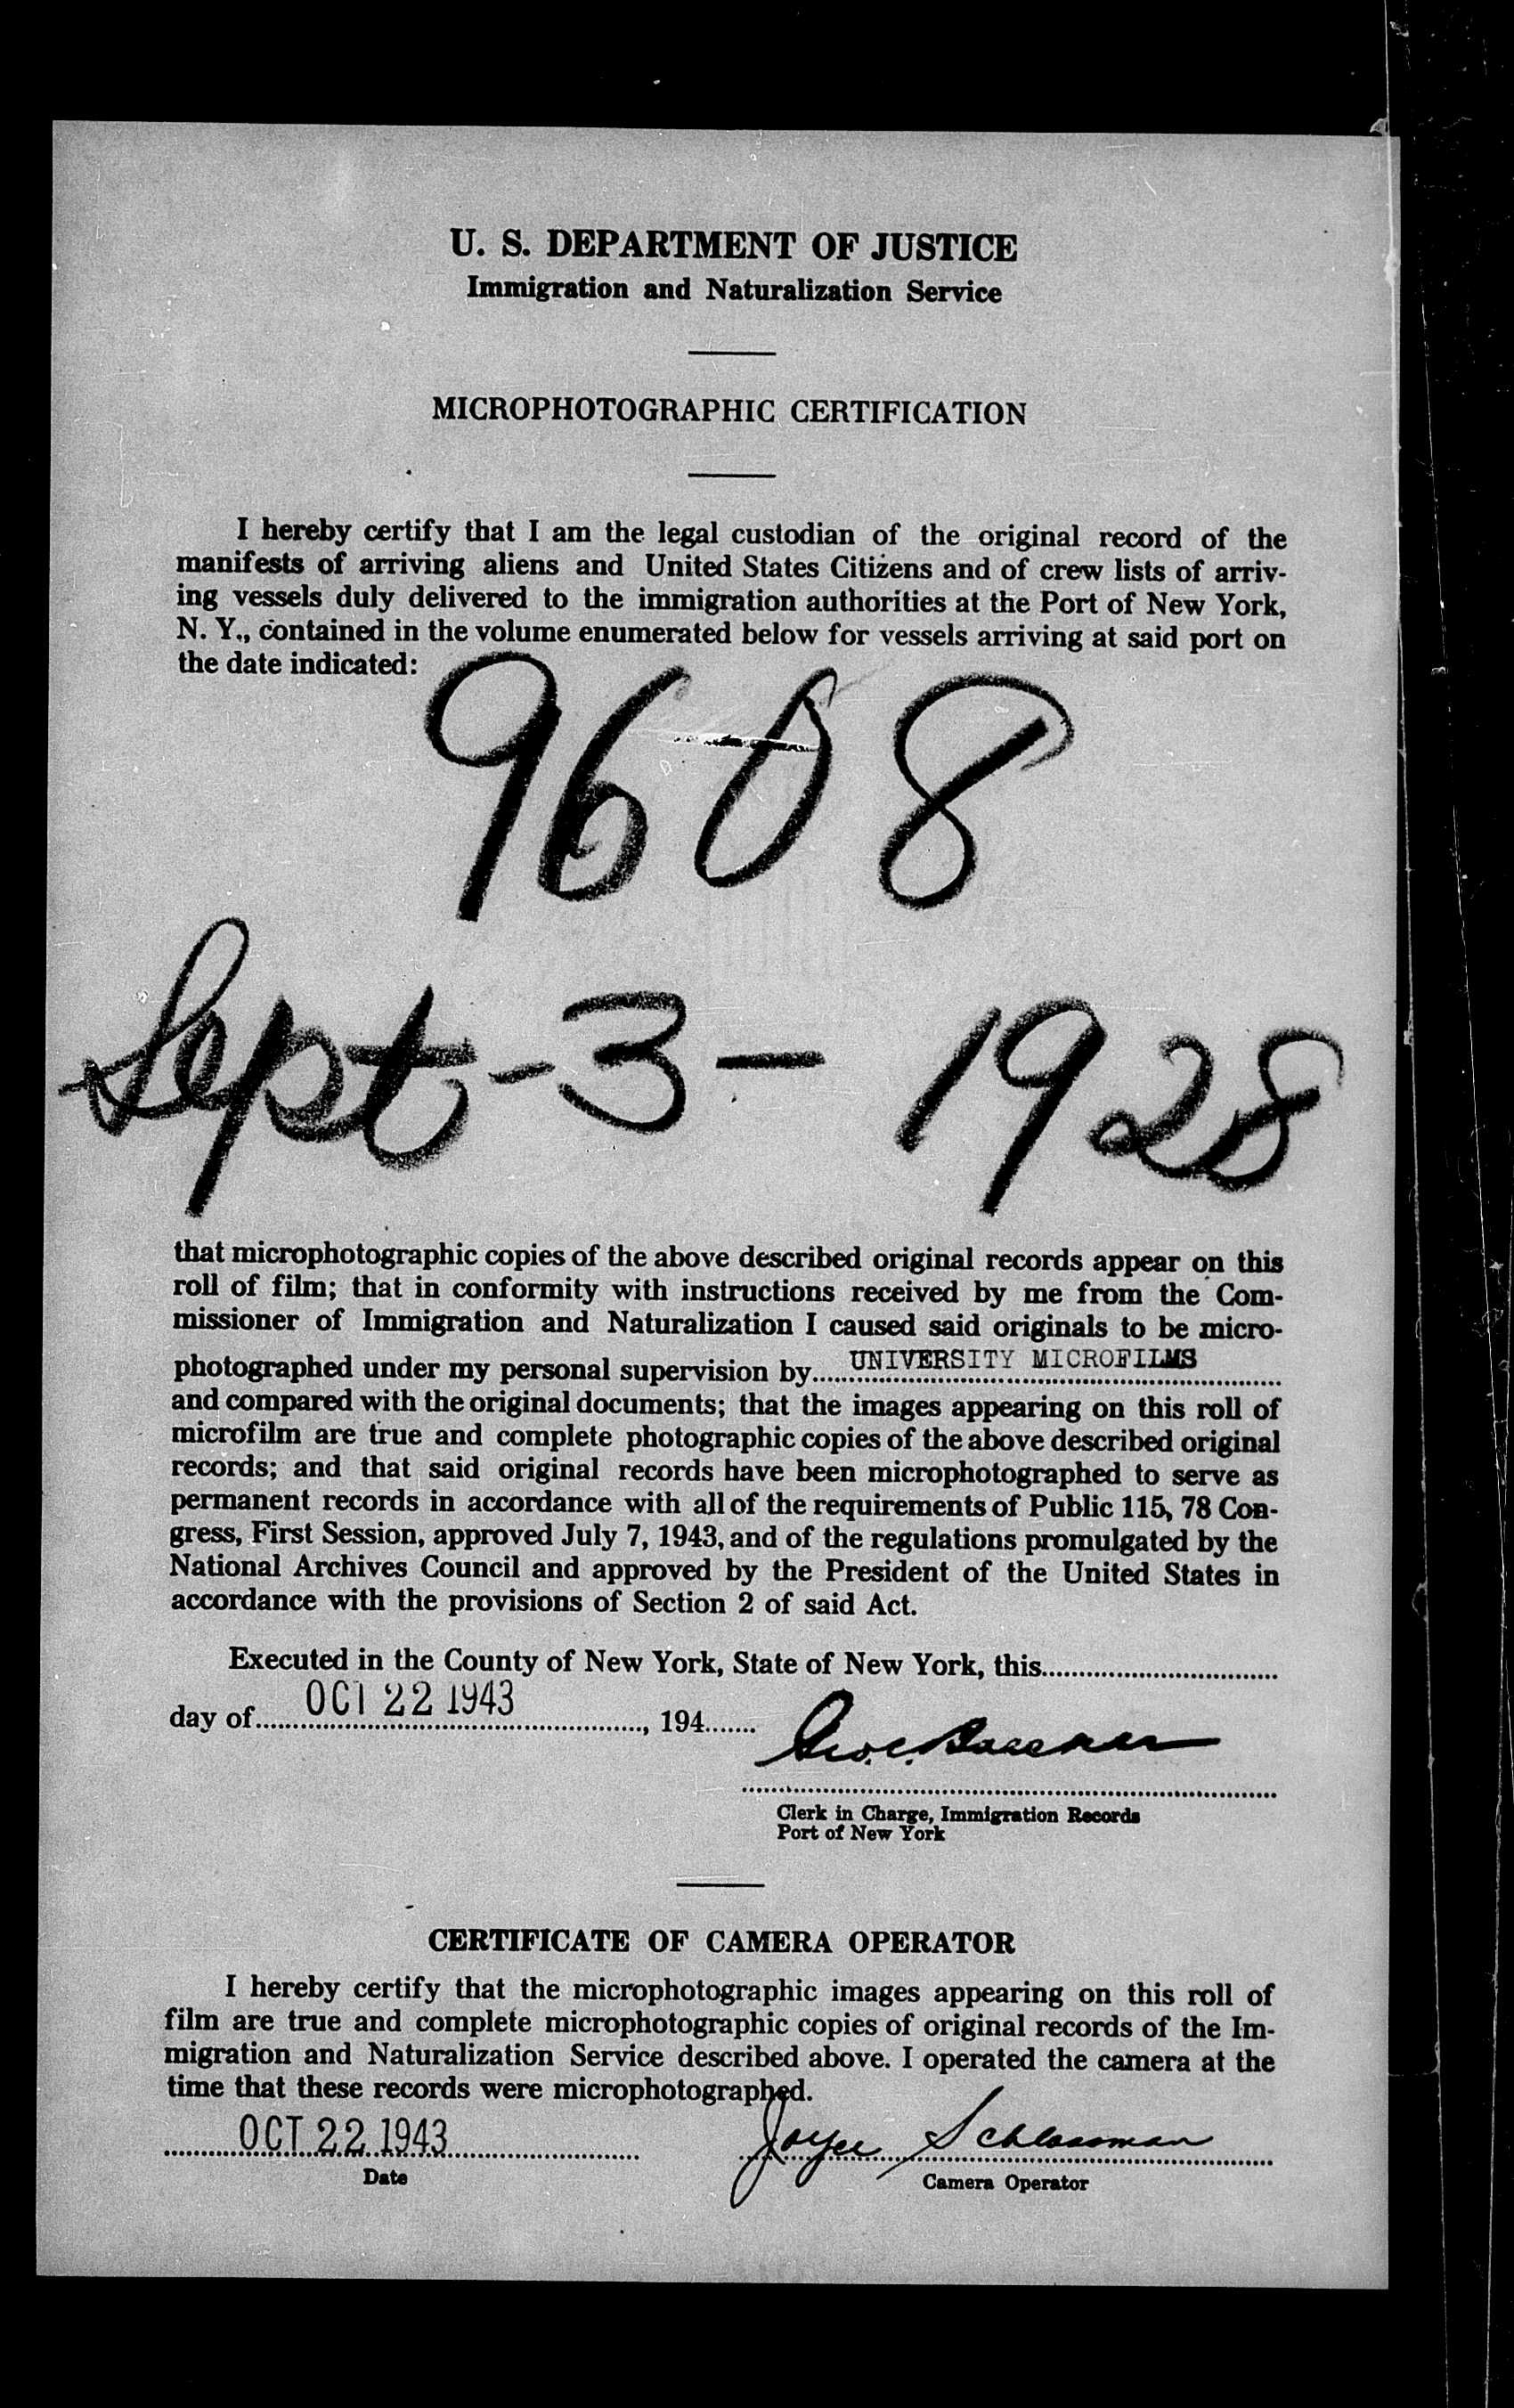 U. S. DEPARTMENT OF JUSTICE
Immigration and Naturalization Service
MICROPHOTOGRAPHIC CERTIFICATION
I hereby certify that I am the legal custodian of the original record of the
manifests of arriving aliens and United States Citizens and of crew lists of arriv-
ing vessels duly delivered to the immigration authorities at the Port of New York,
N. Y., contained in the volume enumerated below for vessels arriving at said port on
the date indicated:
9608
Sept-3-1928
that microphotographic copies of the above described original records appear on this
roll of film; that in conformity with instructions received by me from the Com-
missioner of Immigration and Naturalization I caused said originals to be micro-
photographed under my personal supervision by UNIVERSITY MICROFILMS
and compared with the original documents; that the images appearing on this roll of
microfilm are true and complete photographic copies of the above described original
records; and that said original records have been microphotographed to serve as
permanent records in accordance with all of the requirements of Public 115, 78 Con-
gress, First Session, approved July 7, 1943, and of the regulations promulgated by the
National Archives Council and approved by the President of the United States in
accordance with the provisions of Section 2 of said Act.
Executed in the County of New York, State of New York, this
day of OCT 22 1943, 194
Geo. C.
Clerk in Charge, Immigration Records
Port of New York
CERTIFICATE OF CAMERA OPERATOR
I hereby certify that the microphotographic images appearing on this roll of
film are true and complete microphotographic copies of original records of the Im-
migration and Naturalization Service described above. I operated the camera at the
time that these records were microphotographed.
OCT 22 1943 Joyce Schlossman
Date Camera Operator